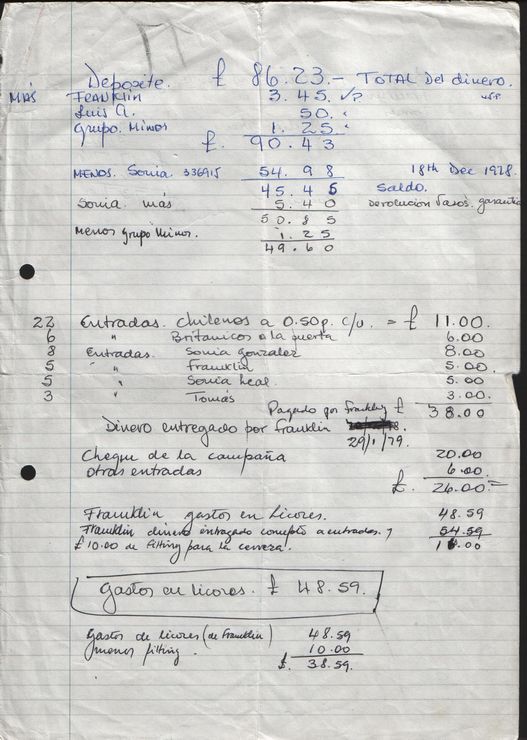 Deposite. £ 86.23.- TOTAL Del dinero.
MÁS FRANKLIN 3.45. V.P.
Luis A. 50.
Grupo. Minos 1.25.
£. 90.43
MENOS. Sonia. 336915 54.98 18th Dec 1978.
45.45 Saldo.
Sonia más 5.40 Devolucion Vasos. garantia
50.85
Menos grupo Minos. 1.25
49.60
22 Entradas. Chilenos a 0.50p. c/u. = £ 11.00.
6 " Britanicos a la puerta 6.00
8 Entradas. Sonia gonzalez 8.00
5 " Franklin 5.00.
5 " Sonia Leal. 5.00
3 " Tomás 3.00.
Pagado por Franklin £ 38.00
Dinero entregado por Franklin
29/1/79.
Cheque de la campaña 20.00
otras entradas 6.00
£. 26.00.=
Franklin gastos en Licores. 48.59
Franklin dinero entregado concepto a entradas. 54.59
£10.00 de filting para la cerveza. 10.00
Gastos en Licores. £ 48.59.
gastos de licores (de Franklin) 48.59
menos filting. 10.00
£. 38.59.